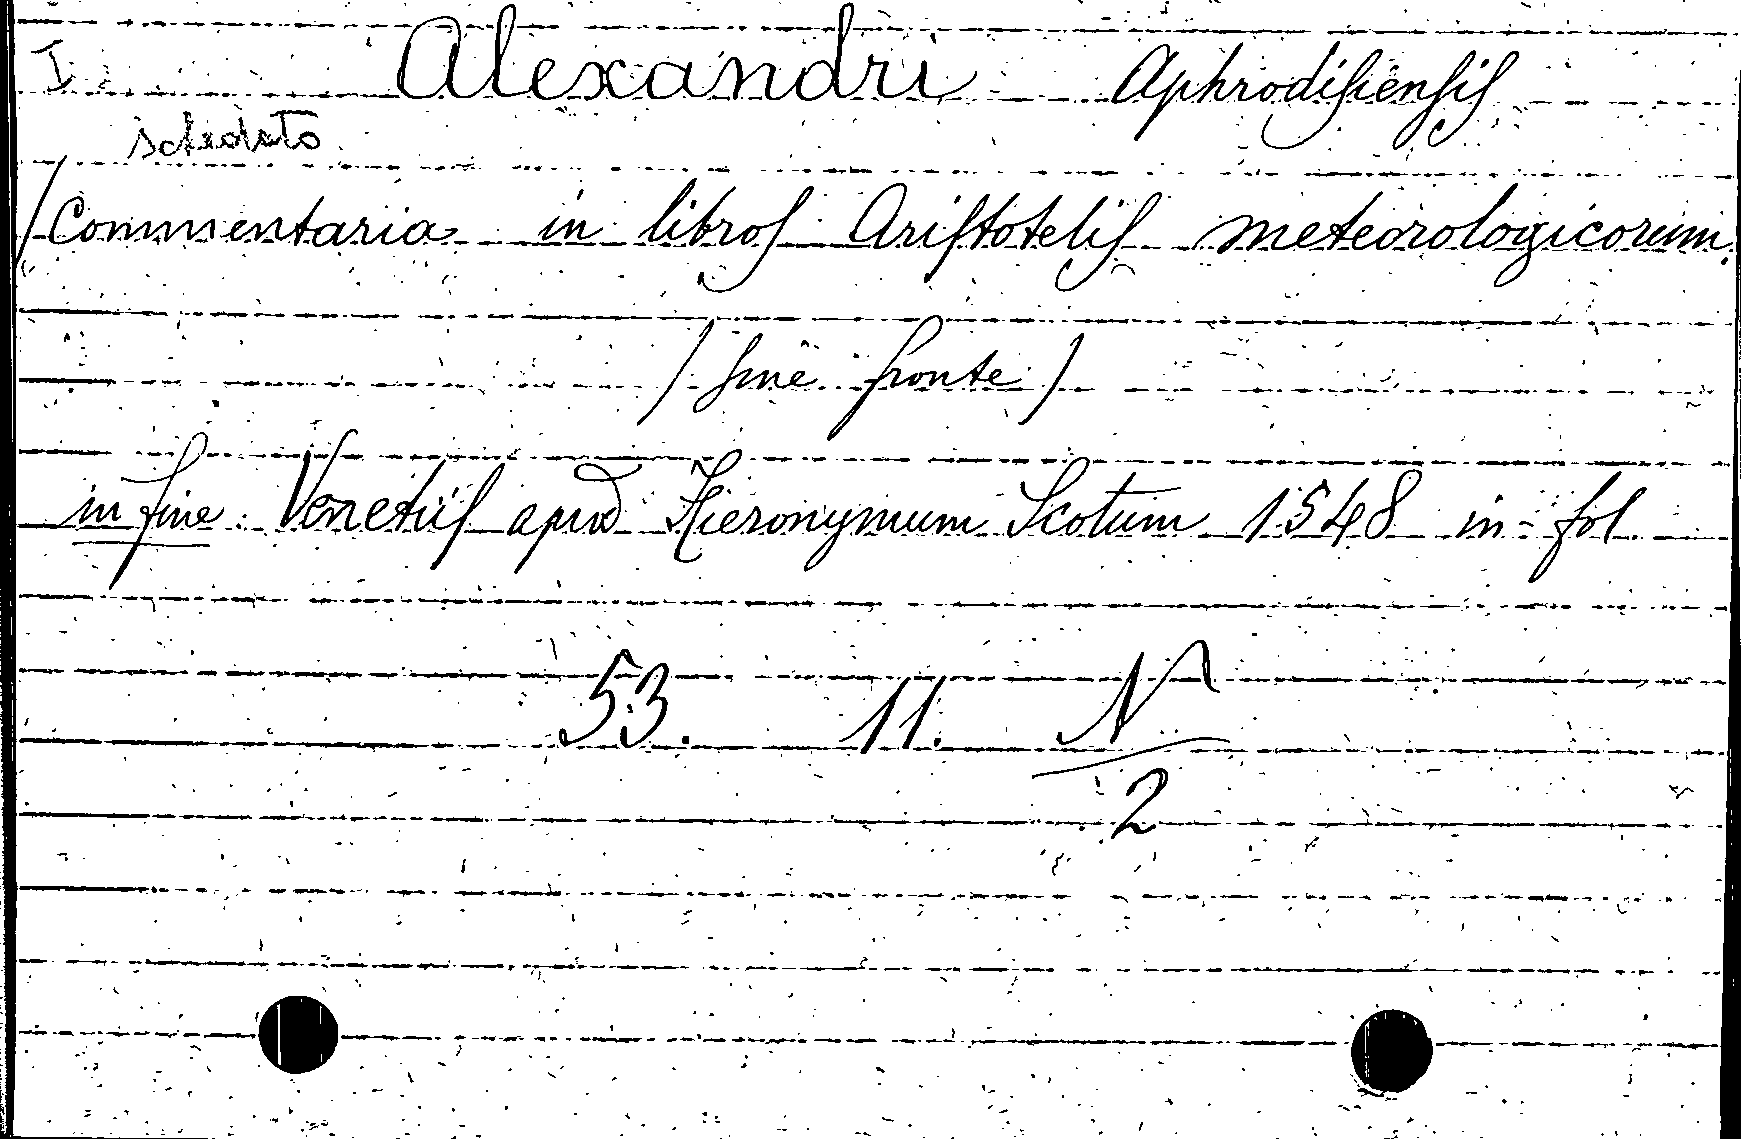 I Alexandri Aphrodisiensis
schedato
/ Commentaria in libros Aristotelis meteorologicorum.
/ sine fronte /
in fine Venetiis apud Hieronymum Scotum 1548 in-fol.
53. 11. N
2